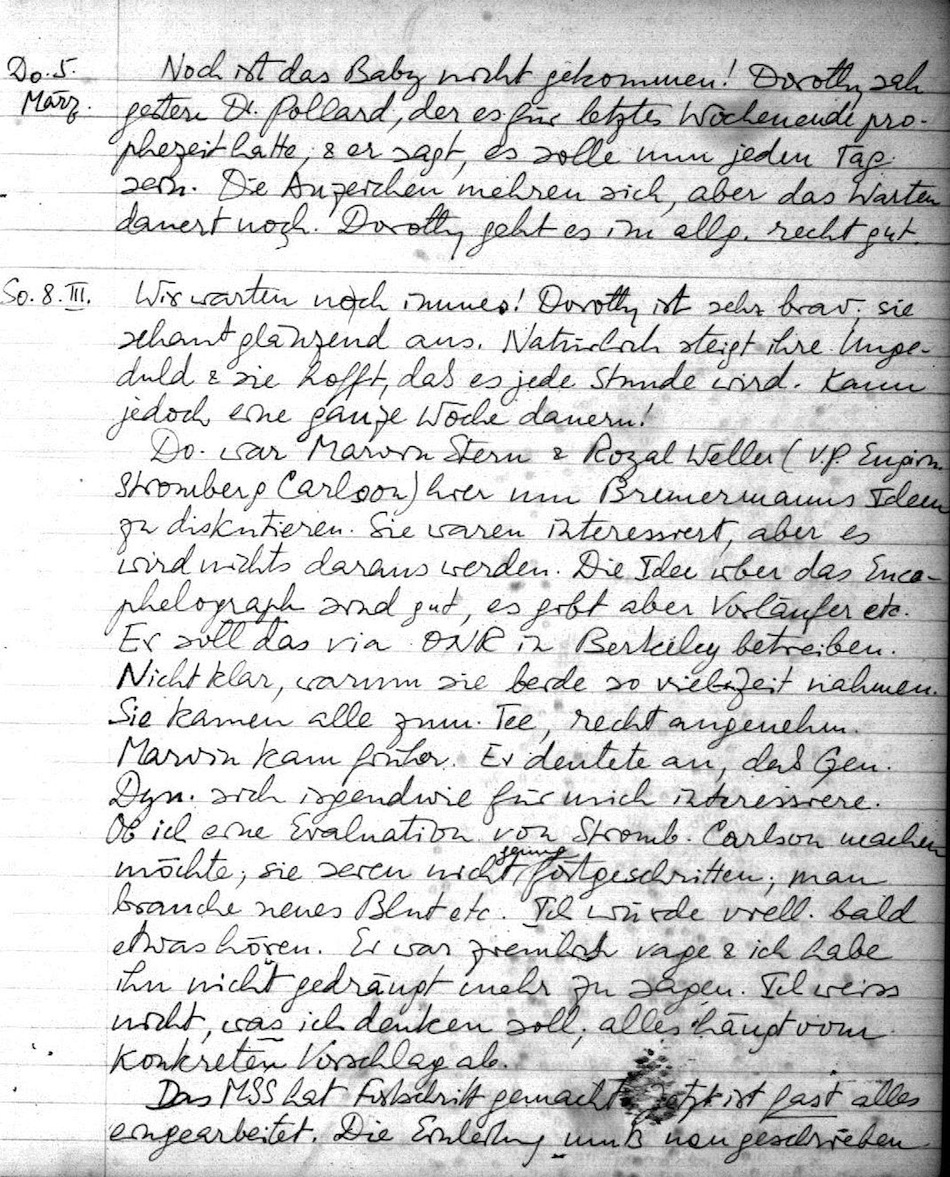 Do. 5. März. Noch ist das Baby nicht gekommen! Dorothy sah
gestern Dr. Pollard, der es für letztes Wochenende pro-
phezeit hatte, & er sagt, es solle nun jeden Tag
sein. Die Anzeichen mehren sich, aber das Warten
dauert noch. Dorothy geht es im allg. recht gut.
So. 8. III. Wir warten noch immer! Dorothy ist sehr brav; sie
schaut glänzend aus. Natürlich steigt ihre Unge-
duld & sie hofft, daß es jede Stunde wird. Kann
jedoch eine ganze Woche dauern!
Do. war Marvin Stern & Rozal Weller (V.P. Engin
Stromberg Carlson) hier um Bremermanns Ideen
zu diskutieren. Sie waren interessiert, aber es
wird nichts daraus werden. Die Idee über das Ence-
phelograph sind gut, es gibt aber Vorläufer etc.
Er soll das via ONR in Berkeley betreiben.
Nicht klar, warum sie beide so viel Zeit nahmen.
Sie kamen alle zum Tee, recht angenehm.
Marvin kam früher. Er deutete an, daß Gen.
Dyn. sich irgendwie für mich interessiere.
Ob ich eine Evaluation von Stromb. Carlson machen
möchte; sie seien nicht genug fortgeschritten; man
brauche neues Blut etc. Ich würde viell. bald
etwas hören. Er war ziemlich vage & ich habe
ihn nicht gedrängt mehr zu sagen. Ich weiss
nicht, was ich denken soll; alles hängt vom
konkreten Vorschlag ab.
Das MSS hat Fortschritt gemacht. Jetzt ist fast alles
eingearbeitet. Die Einleitung muß neu geschrieben